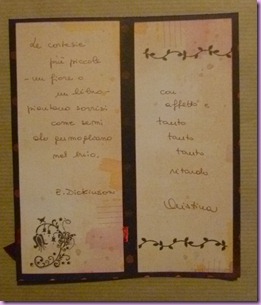 Le cortesie
più piccole
- un fiore o
un libro -
piantano sorrisi
come semi
che germogliano
nel buio.
E. Dickinson
con
affetto e
tanto
tanto
tanto
ritardo
Cristina